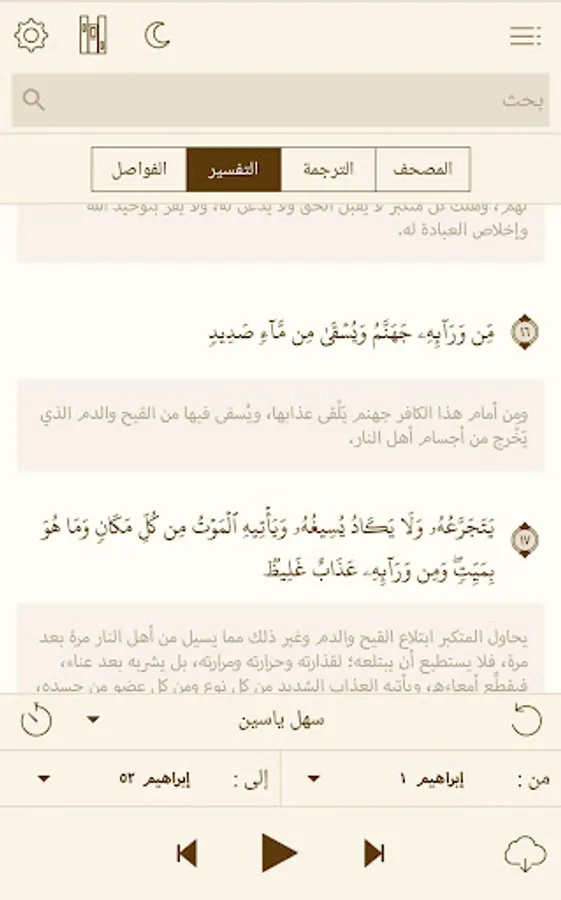 بحث
المصحف
الترجمة
التفسير
الفواصل
لهم، وهلك كل متكبر لا يقبل الحق ولا يُذْعن له، ولا يقر بتوحيد الله
وإخلاص العبادة له.
١٦
مِّن وَرَآئِهِۦ جَهَنَّمُ وَيُسْقَىٰ مِن مَّآءٍ صَدِيدٍ
ومِن أمام هذا الكافر جهنم يَلْقى عذابها، ويُسقى فيها من القيح والدم الذي
يَخْرج من أجسام أهل النار.
١٧
يَتَجَرَّعُهُۥ وَلَا يَكَادُ يُسِيغُهُۥ وَيَأْتِيهِ ٱلْمَوْتُ مِن كُلِّ مَكَانٍ وَمَا هُوَ
بِمَيِّتٍۖ وَمِن وَرَآئِهِۦ عَذَابٌ غَلِيظٌ
يحاول المتكبر ابتلاع القيح والدم وغير ذلك مما يسيل من أهل النار مرة بعد
مرة، فلا يستطيع أن يبتلعه؛ لقذارته وحرارته ومرارته، بل يشربه بعد عناء،
فيقطِّع أمعاءه، ويأتيه العذاب الشديد من كل نوع ومن كل عضو من جسده،
سهل ياسين
من :
إبراهيم ١
إلى :
إبراهيم ٥٢